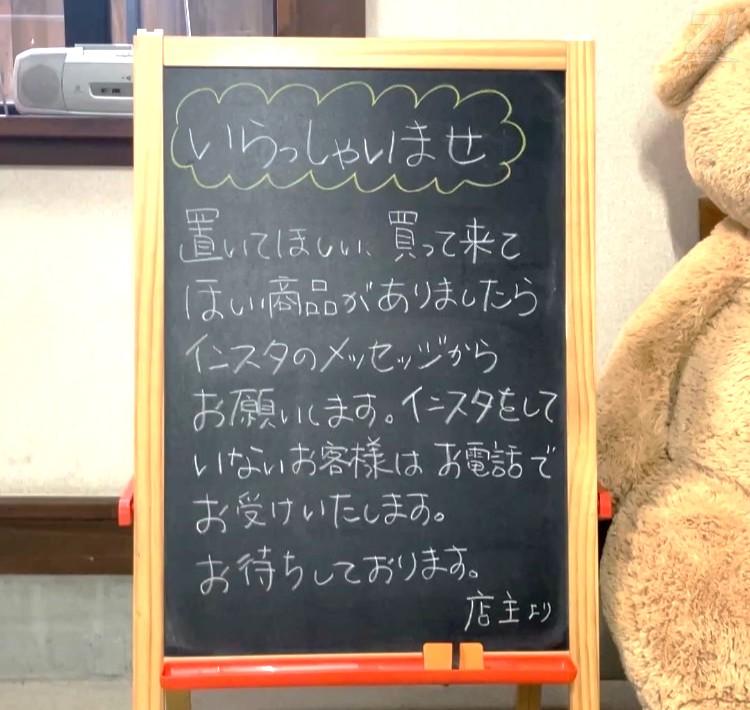 いらっしゃいませ
置いてほしい、買って来て
ほしい商品がありましたら
インスタのメッセッジから
お願いします。インスタをして
いないお客様はお電話で
お受けいたします。
お待ちしております。
店主より